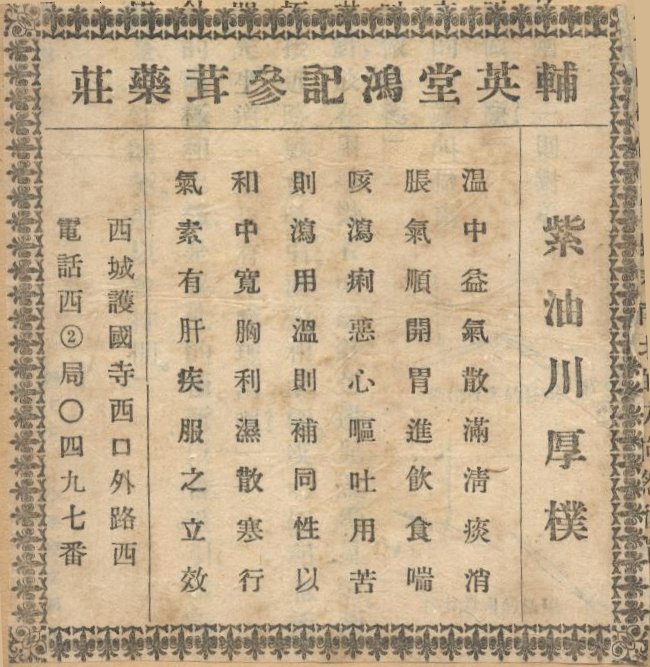 輔英堂鴻記參茸藥莊
紫油川厚樸
溫中益氣散滿淸痰消
脹氣順開胃進飲食喘
咳瀉痢惡心嘔吐用苦
則瀉用溫則補同性以
和中寬胸利濕散寒行
氣素有肝疾服之立效
西城護國寺西口外路西
電話西②局〇四九七番